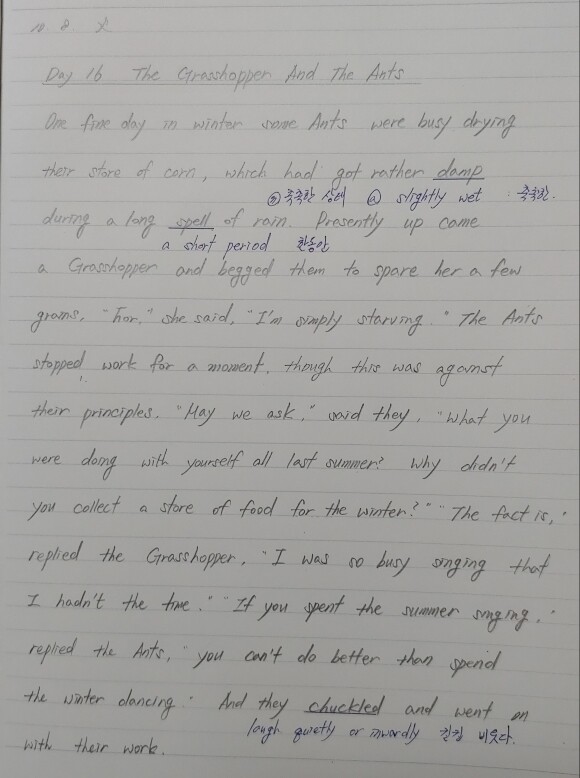 10. 8. 火
Day 16 The Grasshopper And The Ants
One fine day in winter some Ants were busy drying
their store of corn, which had got rather damp
ⓝ 축축한 상태 ⓐ slightly wet : 축축한.
during a long spell of rain. Presently up came
a short period 한동안
a Grasshopper and begged them to spare her a few
grains, "For," she said, "I'm simply starving." The Ants
stopped work for a moment, though this was against
their principles. "May we ask," said they, "What you
were doing with yourself all last summer? Why didn't
you collect a store of food for the winter?" "The fact is,"
replied the Grasshopper, "I was so busy singing that
I hadn't the time." "If you spent the summer singing,"
replied the Ants, "you can't do better than spend
the winter dancing." And they chuckled and went on
laugh quietly or inwardly 킬킬 비웃다.
with their work.